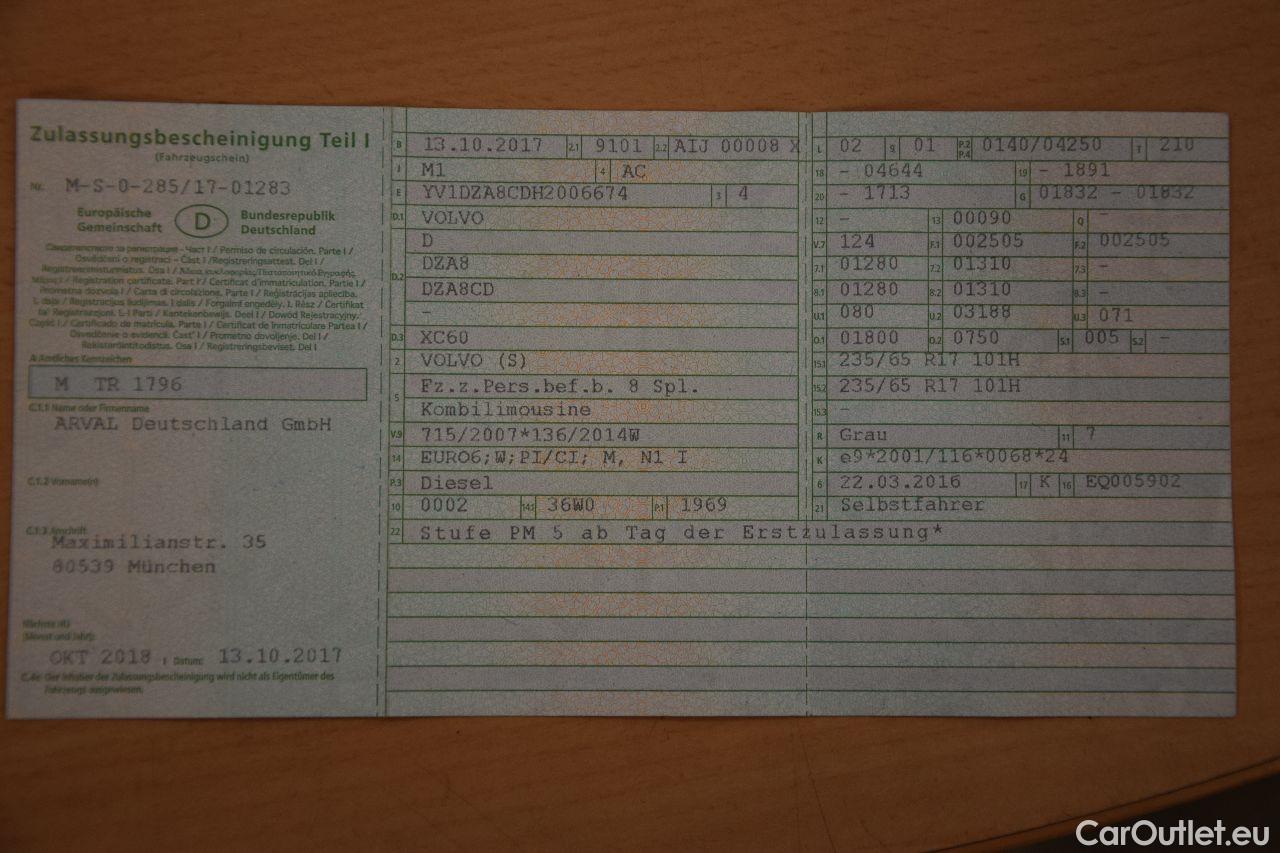 Zulassungsbescheinigung Teil I
(Fahrzeugschein)
Nr. M-S-0-285/17-01283
Europäische Gemeinschaft D Bundesrepublik Deutschland
Свидетелство за регистрация - Част I / Permiso de circulación. Parte I /
Osvědčení o registraci - Část I / Registreringsattest. Del I /
Registreerimistunnistus. Osa I / Άδεια κυκλοφορίας/Πιστοποιητικό Εγγραφής
Μέρος I / Registration certificate. Part I / Certificat d'immatriculation. Partie I /
Prometna dozvola I / Carta di circolazione. Parte I / Reģistrācijas apliecība.
I. daļa / Registracijos liudijimas. I dalis / Forgalmi engedély. I. Rész / Ċertifikat
ta' Reġistrazzjoni. L-I Parti / Kentekenbewijs. Deel I / Dowód Rejestracyjny.
Część I / Certificado de matrícula. Parte I / Certificat de înmatriculare Partea I /
Osvedčenie o evidencii. Časť I / Prometno dovoljenje. Del I /
Rekisteröintitodistus. Osa I / Registreringsbeviset. Del I
A Amtliches Kennzeichen
M TR 1796
C.1.1 Name oder Firmenname
ARVAL Deutschland GmbH
C.1.2 Vorname(n)
C.1.3 Anschrift
Maximilianstr. 35
80539 München
Nächste HU
(Monat und Jahr):
OKT 2018 I Datum: 13.10.2017
C.4c Der Inhaber der Zulassungsbescheinigung wird nicht als Eigentümer des
Fahrzeugs ausgewiesen.
B 13.10.2017 2.1 9101 2.2 AIJ 00008 X
J M1 4 AC
E YV1DZA8CDH2006674 3 4
D.1 VOLVO
D
D.2 DZA8
DZA8CD
-
D.3 XC60
2 VOLVO (S)
5 Fz.z.Pers.bef.b. 8 Spl.
Kombilimousine
V.9 715/2007*136/2014W
14 EURO6;W;PI/CI; M, N1 I
P.3 Diesel
10 0002 14.1 36W0 P.1 1969
22 Stufe PM 5 ab Tag der Erstzulassung*
L 02 9 01 P.2 P.4 0140/04250 T 210
18 - 04644 19 - 1891
20 - 1713 G 01832 - 01832
12 - 13 00090 Q -
V.7 124 F.1 002505 F.2 002505
7.1 01280 7.2 01310 7.3 -
8.1 01280 8.2 01310 8.3 -
U.1 080 U.2 03188 U.3 071
O.1 01800 O.2 0750 S.1 005 S.2 -
15.1 235/65 R17 101H
15.2 235/65 R17 101H
15.3 -
R Grau 11 7
K e9*2001/116*0068*24
6 22.03.2016 17 K 16 EQ005902
21 Selbstfahrer
CarOutlet.eu